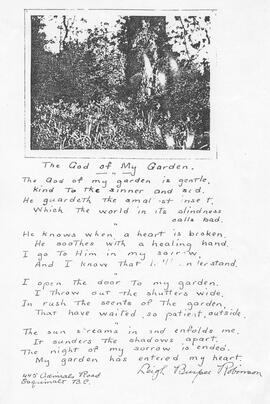 The God of My Garden.
The God of my garden is gentle,
Kind to the sinner and sad.
He guardeth the smallest insect,
Which the world in its blindness
calls bad.
"
He knows when a heart is broken,
He soothes with a healing hand.
I go To Him in my sorrow,
And I know that He'll understand.
"
I open the door To my garden.
I Throw out the shutters wide,
In rush the scents of The garden
That have waited, so patient, outside.
"
The sun streams in and enfolds me,
It sunders the shadows apart.
The night of my sorrow is ended.
My garden has entered my heart.
445 Road
Esquimalt B.C.
Leigh Burpee Robinson